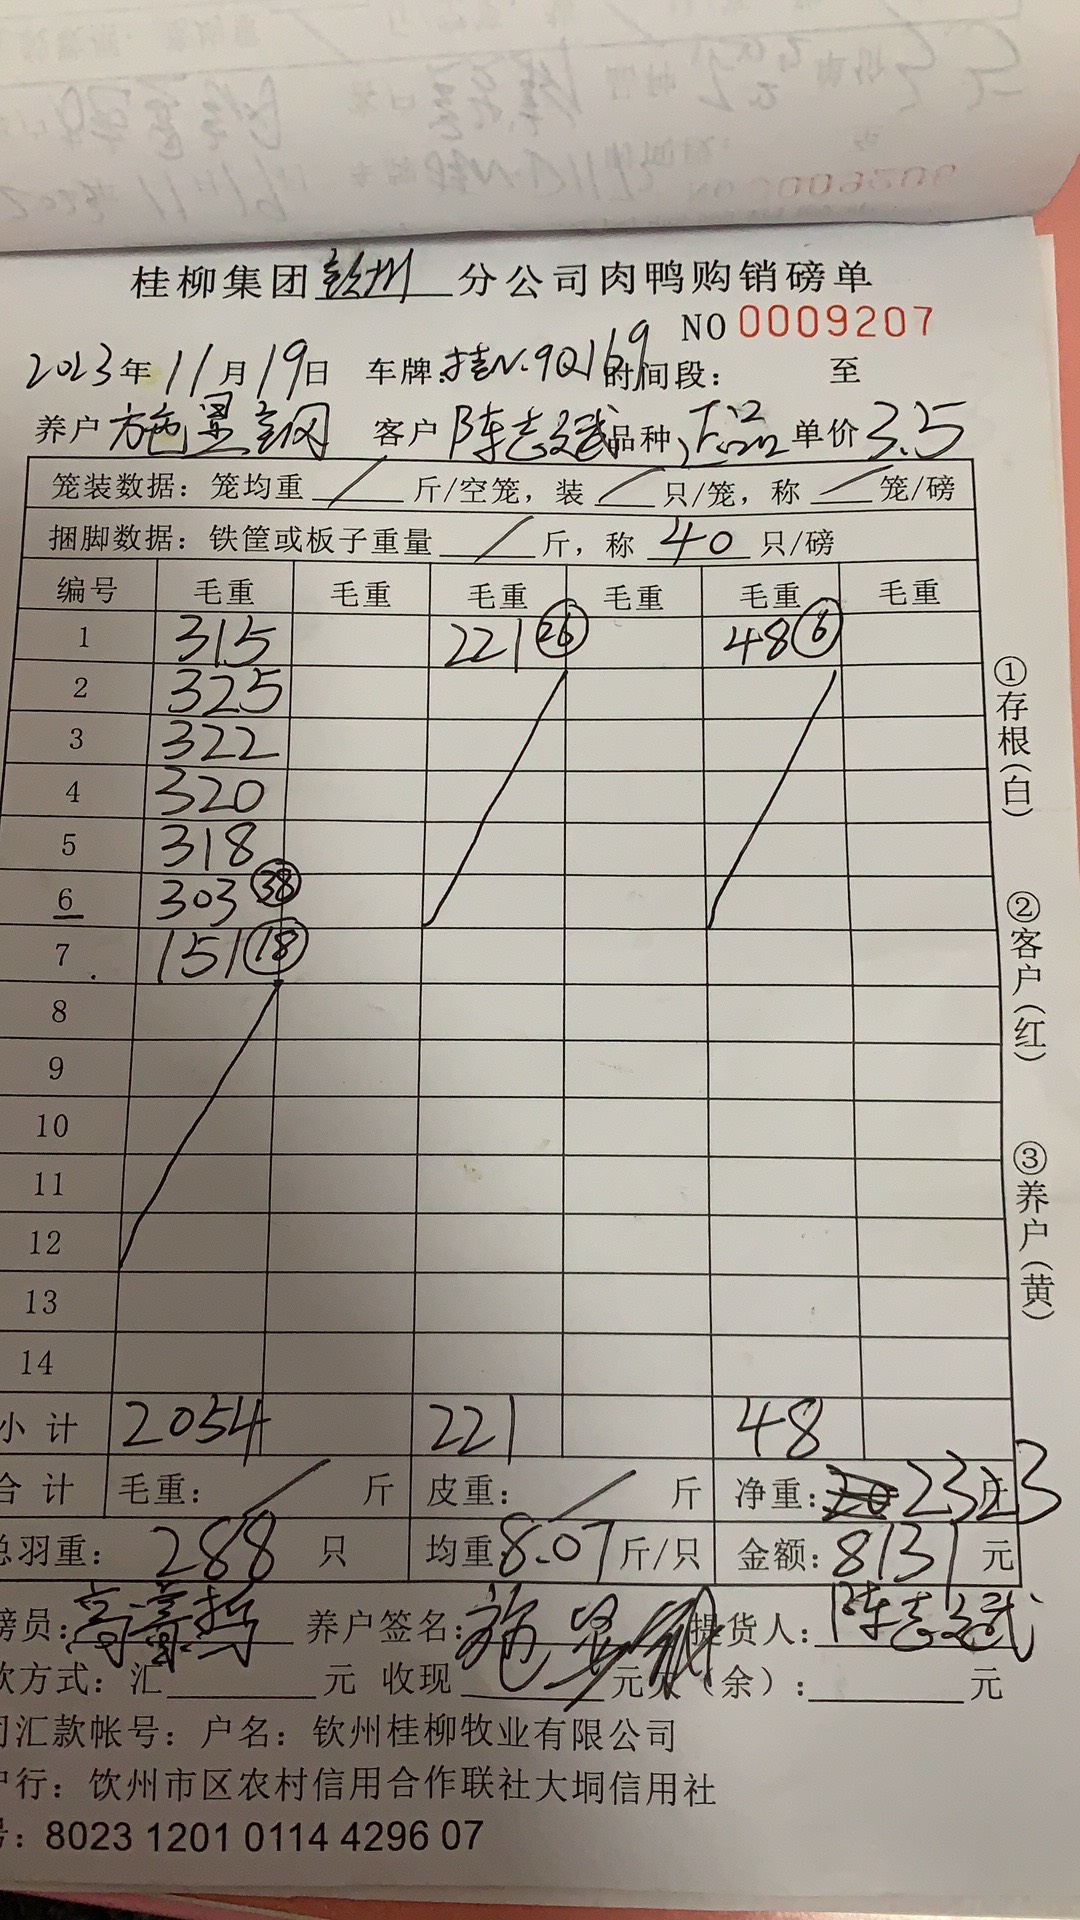 桂柳集团钦州分公司肉鸭购销磅单
NO 0009207
2023年11月19日 车牌:桂N.9Q169 时间段: 至
养户 施景 客户 陈志斌 品种 正品 单价 3.5
笼装数据:笼均重 / 斤/空笼,装 / 只/笼,称 / 笼/磅
捆脚数据:铁筐或板子重量 / 斤,称 40 只/磅
编号 毛重 毛重 毛重 毛重 毛重 毛重
1 315 221 26 48 6
2 325
3 322
4 320
5 318
6 303 38
7 151 18
8
9
10
11
12
13
14
小计 2054 221 48
合计 毛重: / 斤 皮重: / 斤 净重: 2323 斤
总羽重: 288 只 均重 8.07 斤/只 金额: 8131 元
磅员: 高 养户签名: 施景 提货人: 陈志斌
款方式:汇 元 收现 元欠(余): 元
司汇款帐号:户名:钦州桂柳牧业有限公司
户行:钦州市区农村信用合作联社大垌信用社
号:8023 1201 0114 4296 07
①存根(白)
②客户(红)
③养户(黄)